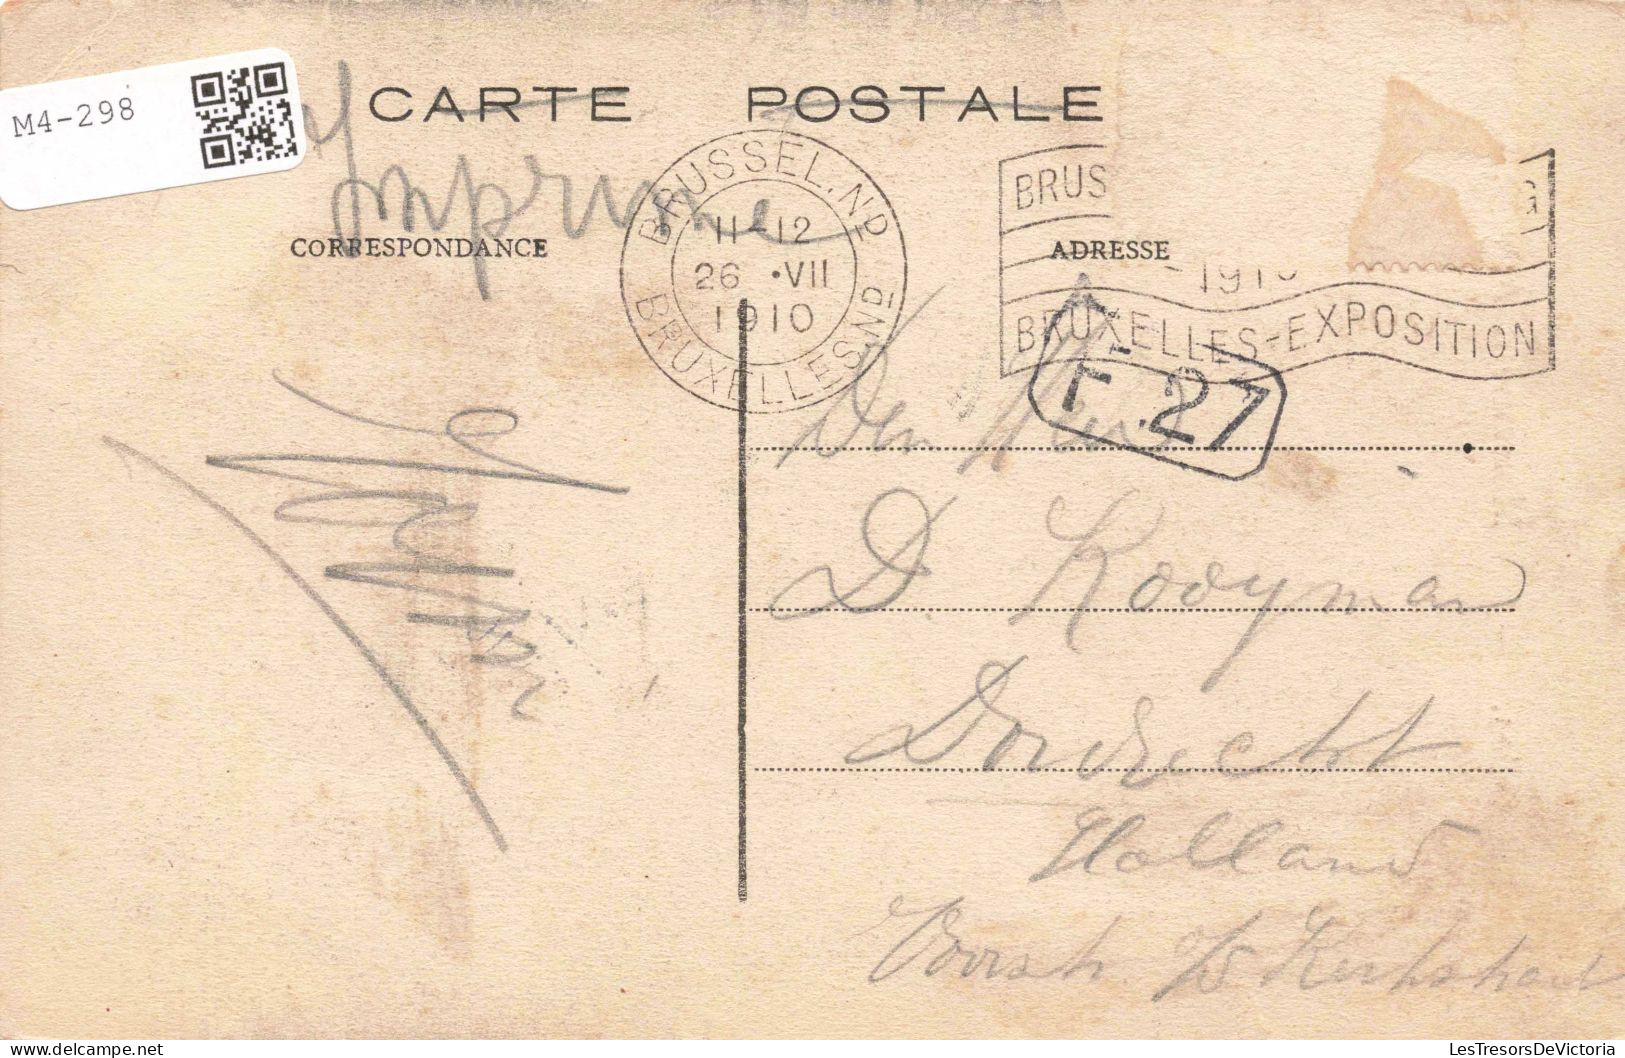 M4-298
CARTE POSTALE
Imprimé
CORRESPONDANCE
ADRESSE
BRUSSEL.ND
11-12
26 •VII
1910
BRUXELLES.ND
BRUS
G
1910
BRUXELLES-EXPOSITION
F.27
Den Heer
D. Kooyman
Dordrecht
Holland
Voorstr.
LesTresorsDeVictoria